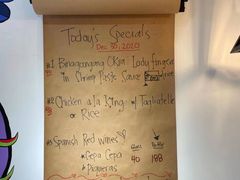 Today's Specials
Dec 30, 2020
#1 Binagoongang Okra Lady fingers
in Shrimp Paste Sauce
#2 Chicken a la King w/ Tagliatelle
or Rice
#3 Spanish Red wines
Glass
* Cepa Cepa 40 188
* Piqueras